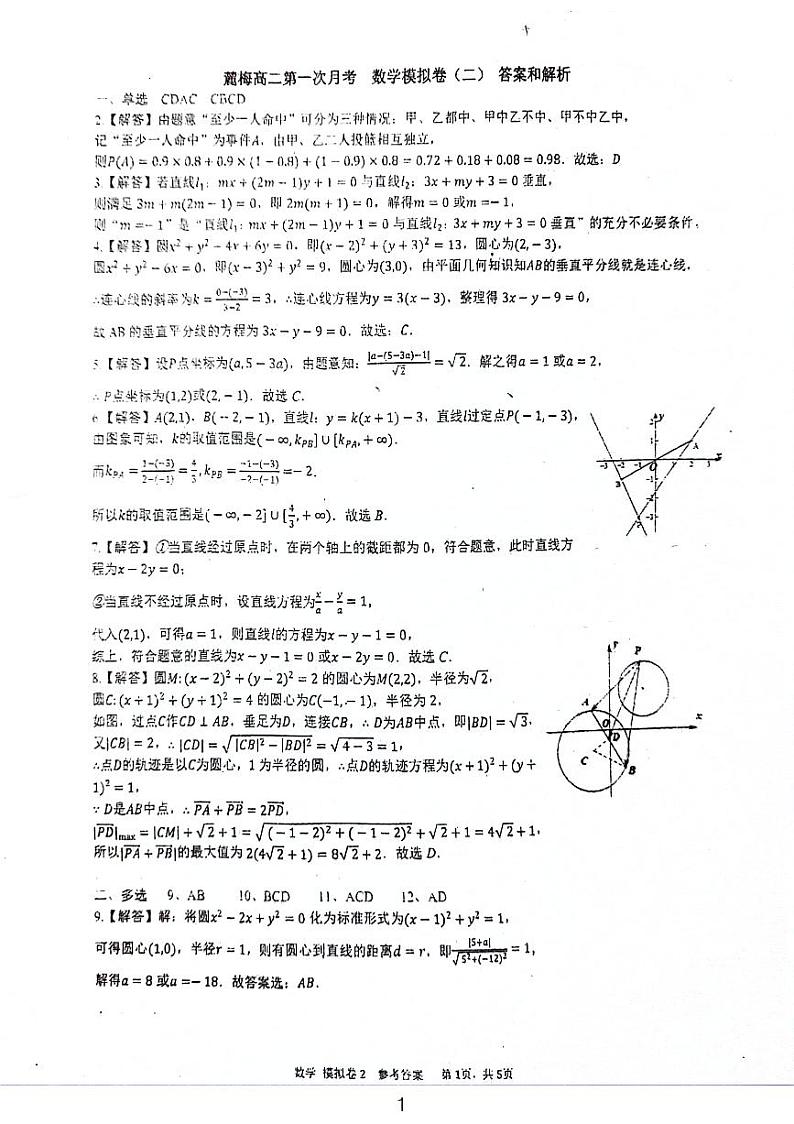 麓梅高二第一次月考 数学模拟卷（二） 答案和解析
一、单选 CDAC CBCD
2.【解答】由题意“至少一人命中”可分为三种情况：甲、乙都中、甲中乙不中、甲不中乙中，
记“至少一人命中”为事件A，由甲、乙二人投篮相互独立，
则P(A) = 0.9 × 0.8 + 0.9 × (1 − 0.8) + (1 − 0.9) × 0.8 = 0.72 + 0.18 + 0.08 = 0.98．故选：D
3.【解答】若直线l₁：mx + (2m − 1)y + 1 = 0 与直线l₂：3x + my + 3 = 0 垂直，
则满足 3m + m(2m − 1) = 0，即 2m(m + 1) = 0，解得m = 0 或m =− 1，
则“m =− 1”是“直线l₁：mx + (2m − 1)y + 1 = 0 与直线l₂：3x + my + 3 = 0 垂直”的充分不必要条件，
4.【解答】圆x² + y² − 4x + 6y = 0，即(x − 2)² + (y + 3)² = 13，圆心为(2, − 3)，
圆x² + y² − 6x = 0，即(x − 3)² + y² = 9，圆心为(3,0)，由平面几何知识知AB的垂直平分线就是连心线，
∴连心线的斜率为k = \frac{0−(−3)}{3−2} = 3，∴连心线方程为y = 3(x − 3)，整理得 3x − y − 9 = 0，
故 AB 的垂直平分线的方程为 3x − y − 9 = 0．故选：C．
5.【解答】设P点坐标为(a, 5 − 3a)，由题意知：\frac{|a−(5−3a)−1|}{√2} = √2．解之得a = 1 或a = 2，
∴ P点坐标为(1,2)或(2, − 1)．故选 C．
6.【解答】A(2,1)，B( − 2, − 1)，直线l：y = k(x + 1) − 3，直线l过定点P( − 1, − 3)，
由图象可知，k的取值范围是( − ∞, k_{PB}] ∪ [k_{PA}, + ∞)．
而k_{PA} = \frac{1−(−3)}{2−(−1)} = \frac{4}{3}, k_{PB} = \frac{−1−(−3)}{−2−(−1)} =− 2．
所以k的取值范围是( − ∞, − 2] ∪ [\frac{4}{3}, + ∞)．故选 B．
7.【解答】①当直线经过原点时，在两个轴上的截距都为 0，符合题意，此时直线方
程为x − 2y = 0；
②当直线不经过原点时，设直线方程为\frac{x}{a} − \frac{y}{a} = 1，
代入(2,1)，可得a = 1，则直线l的方程为x − y − 1 = 0，
综上，符合题意的直线为x − y − 1 = 0 或x − 2y = 0．故选 C．
8.【解答】圆M: (x − 2)² + (y − 2)² = 2 的圆心为M(2,2)，半径为√2，
圆C: (x + 1)² + (y + 1)² = 4 的圆心为C(−1, − 1)，半径为 2，
如图，过点C作CD ⊥ AB，垂足为D，连接CB，∴ D为AB中点，即|BD| = √3，
又|CB| = 2，∴ |CD| = √(|CB|² − |BD|²) = √(4 − 3) = 1，
∴点D的轨迹是以C为圆心，1 为半径的圆，∴点D的轨迹方程为(x + 1)² + (y +
1)² = 1，
∵ D是AB中点，∴ \overline{PA} + \overline{PB} = 2\overline{PD}，
|\overline{PD}|max = |CM| + √2 + 1 = √(( − 1 − 2)² + ( − 1 − 2)²) + √2 + 1 = 4√2 + 1，
所以|\overline{PA} + \overline{PB}|的最大值为 2(4√2 + 1) = 8√2 + 2．故选 D．
二、多选 9、AB 10、BCD 11、ACD 12、AD
9.【解答】解：将圆x² − 2x + y² = 0 化为标准形式为(x − 1)² + y² = 1，
可得圆心(1,0)，半径r = 1，则有圆心到直线的距离d = r，即\frac{|5+a|}{√(5²+(−12)²)} = 1，
解得a = 8 或a =− 18．故答案选：AB．
y
2
1
A
-3 -2 -1 O 1 2 3 x
B
-1
-2
-3
y
P
A
O
x
D
C
B
数学 模拟卷 2 参考答案 第 1页，共 5页
1